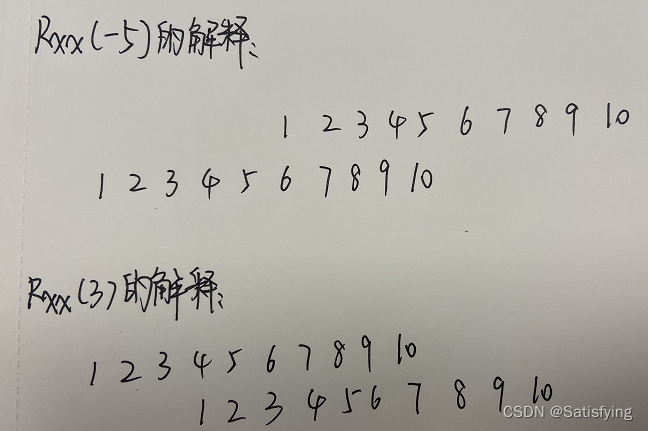 Rxx(-5)的解释:
1 2 3 4 5 6 7 8 9 10
1 2 3 4 5 6 7 8 9 10
Rxx(3)的解释:
1 2 3 4 5 6 7 8 9 10
1 2 3 4 5 6 7 8 9 10
CSDN @Satisfying